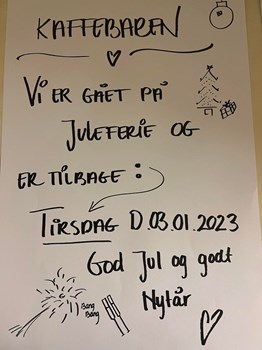 KAFFEBAREN
VI ER GÅET PÅ
JULEFERIE OG
ER TILBAGE :
TIRSDAG D. 03.01.2023
God Jul og godt
Nytår
Bang
Bang